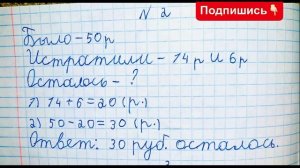 N 2
Подпишись
Было – 50р
Истратили – 14р и 6р
Осталось – ?
1) 14 + 6 = 20 (р.)
2) 50 - 20 = 30 (р.)
Ответ: 30 руб. осталось.